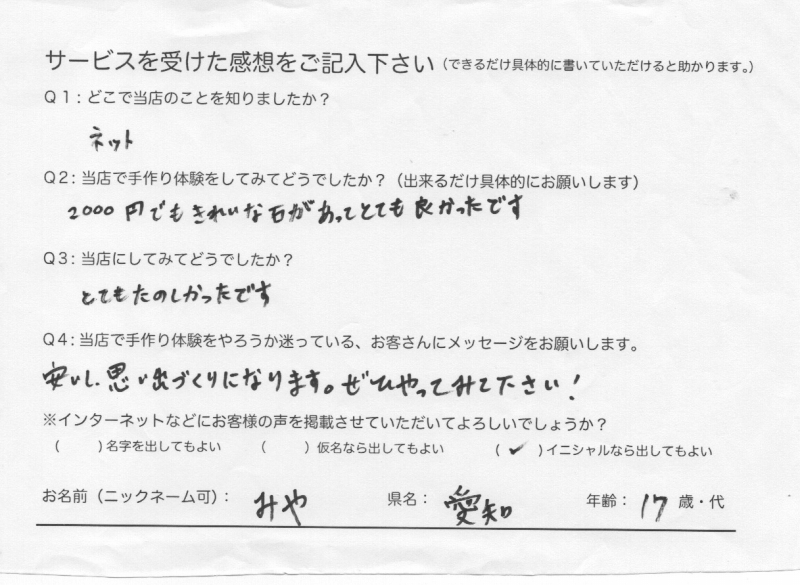 サービスを受けた感想をご記入下さい（できるだけ具体的に書いていただけると助かります。）
Q1：どこで当店のことを知りましたか？
ネット
Q2：当店で手作り体験をしてみてどうでしたか？（出来るだけ具体的にお願いします）
2000円でもきれいな石があってとても良かったです
Q3：当店にしてみてどうでしたか？
とてもたのしかったです
Q4：当店で手作り体験をやろうか迷っている、お客さんにメッセージをお願いします。
安いし、思い出づくりになります。ぜひやってみて下さい！
※インターネットなどにお客様の声を掲載させていただいてよろしいでしょうか？
（　　）名字を出してもよい　（　　）仮名なら出してもよい　（ ✓ ）イニシャルなら出してもよい
お名前（ニックネーム可）： みや　県名： 愛知　年齢： 17 歳・代